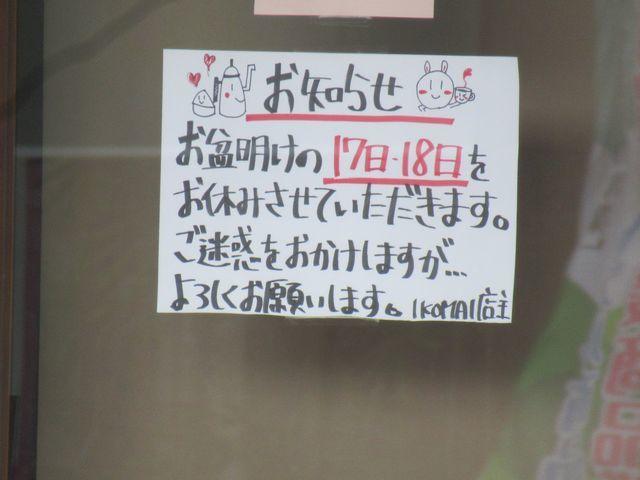 お知らせ
お盆明けの17日・18日を
お休みさせていただきます。
ご迷惑をおかけしますが...
よろしくお願いします。IKOMAI店主